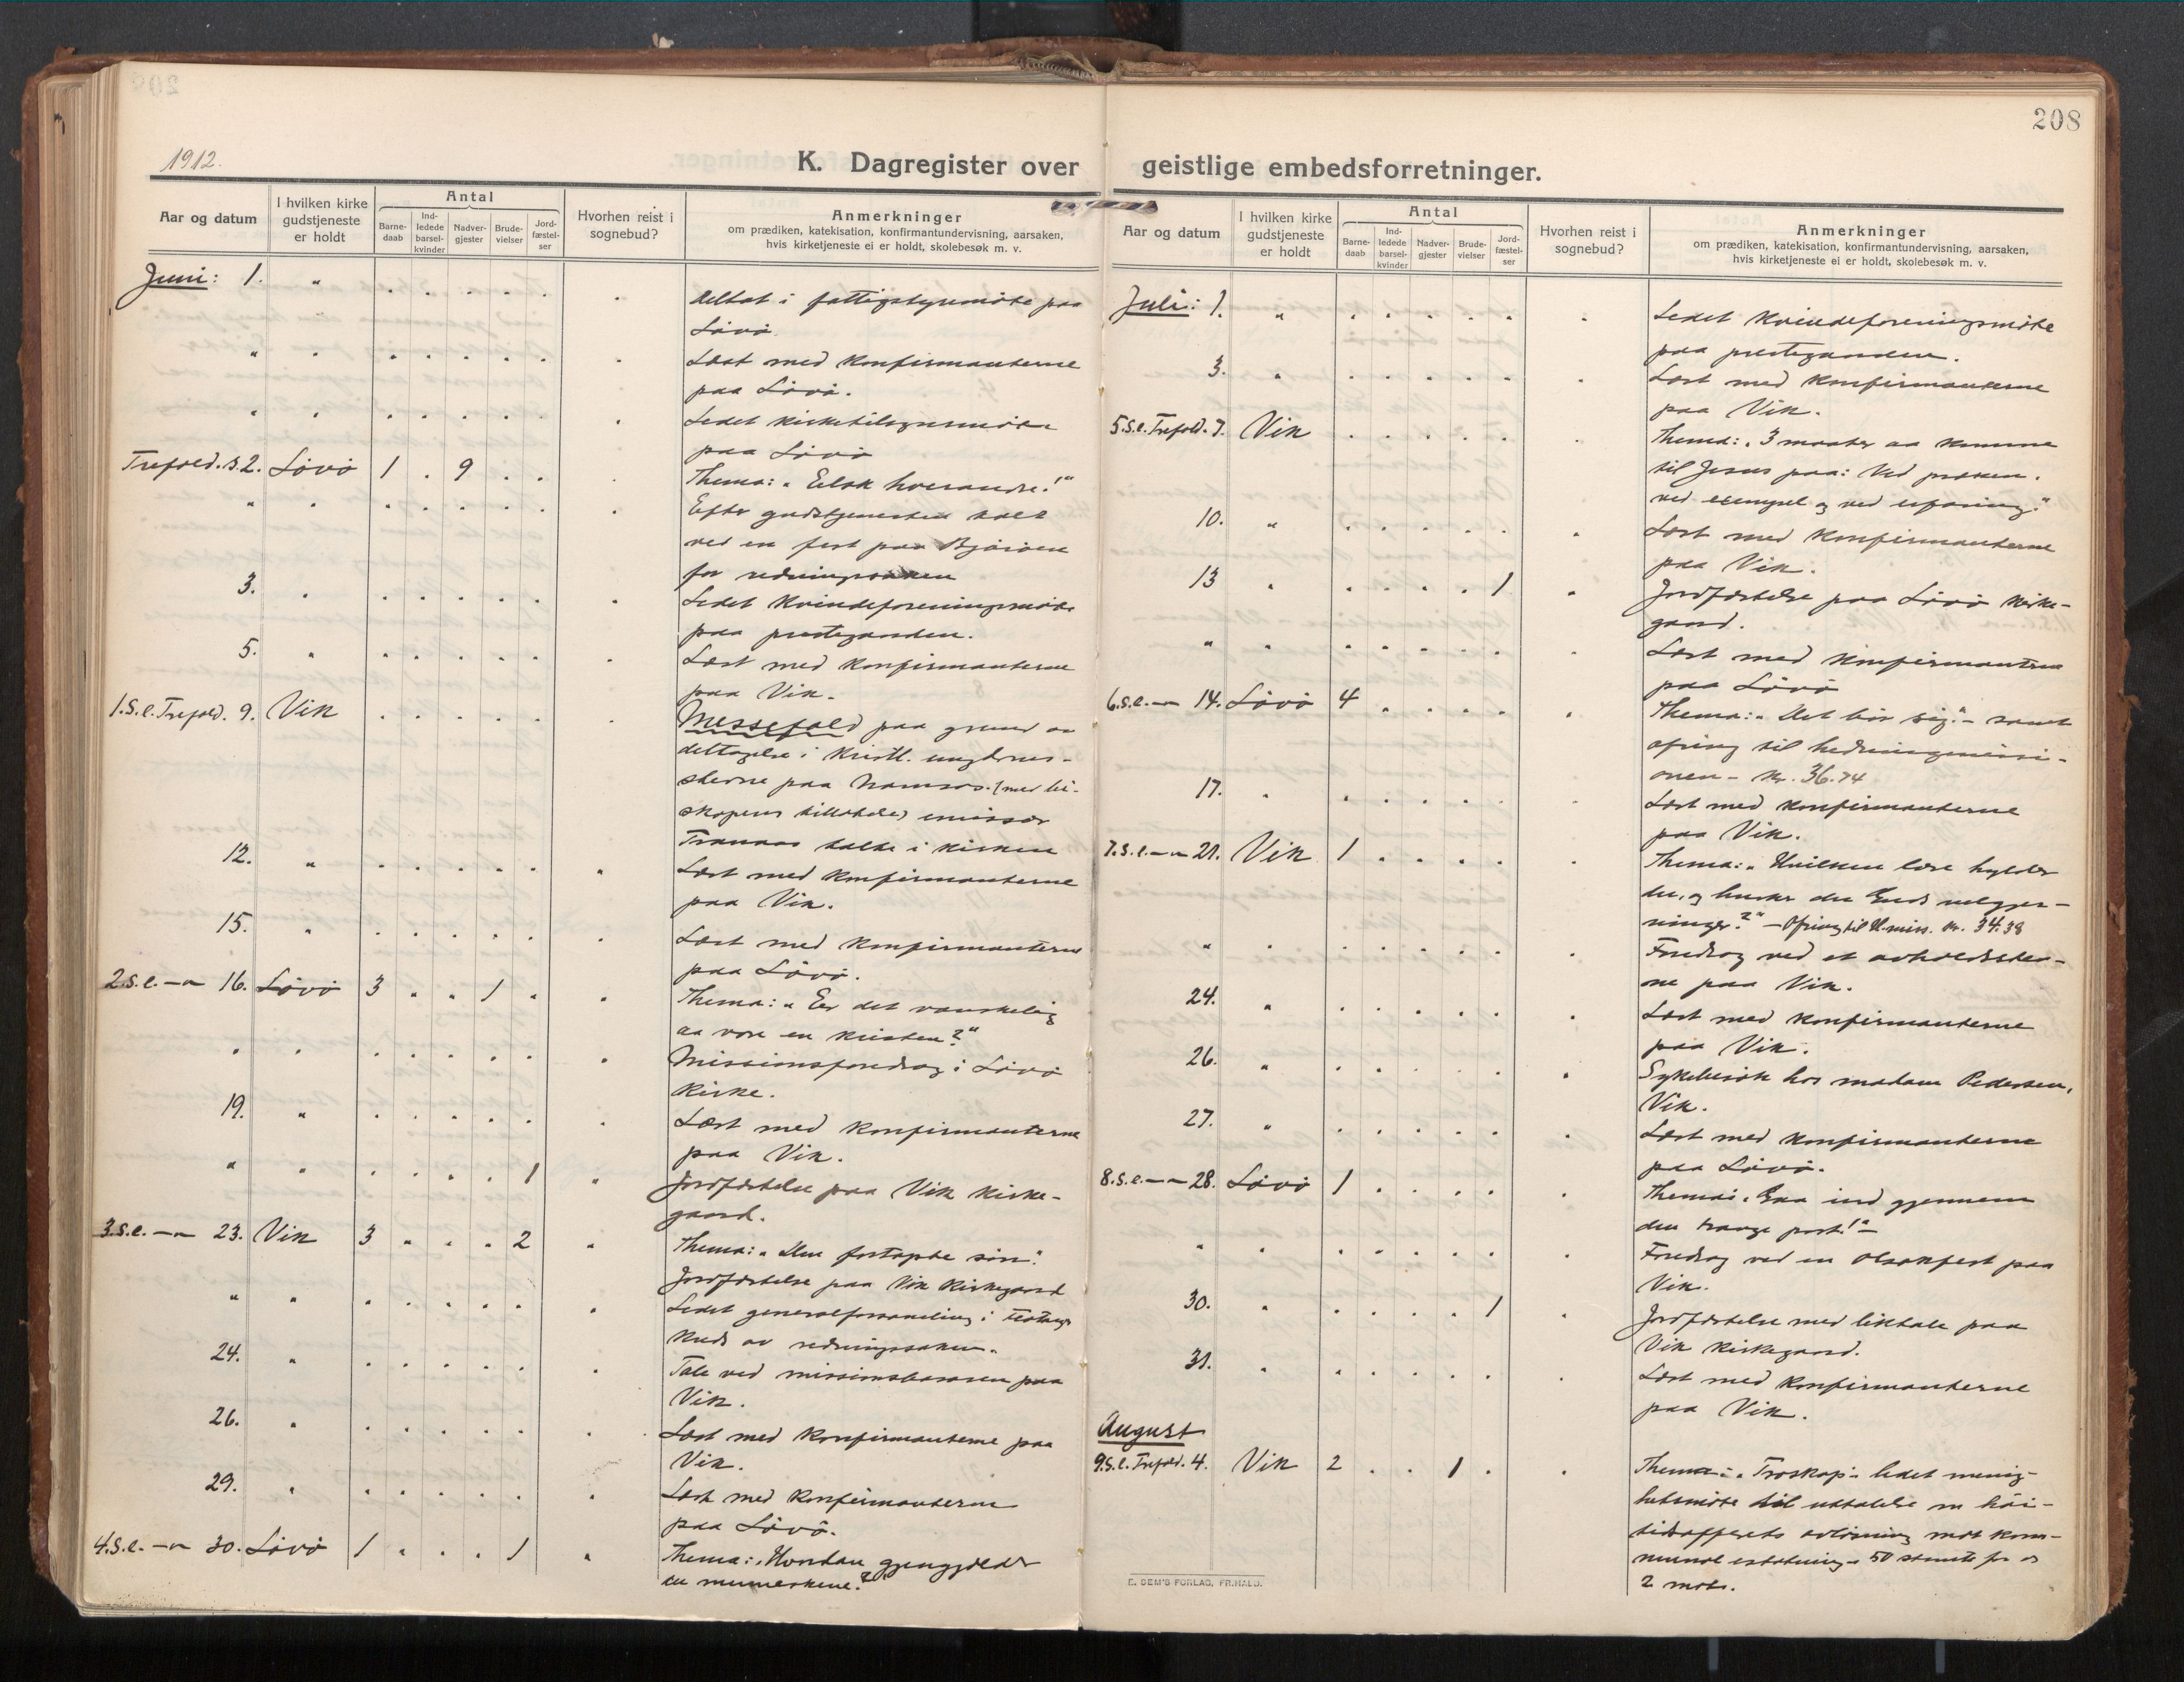 208
1912.
K. Dagregister over geistlige embedsforretninger.
Aar og datum
I hvilken kirke gudstjeneste er holdt
Antal
Barne-daab
Ind-ledede barsel-kvinder
Nadver-gjester
Brude-vielser
Jord-fæstel-ser
Hvorhen reist i sognebud?
Anmerkninger
om prædiken, katekisation, konfirmantundervisning, aarsaken,
hvis kirketjeneste ei er holdt, skolebesøk m. v.
Juni: 1. " Deltat i fattigstyremöte paa
Lövö.
" " Læst med konfirmanterne
paa Lövö.
" " Ledet kirketilsynsmöte
paa Lövö
Trefold. s. 2. Lövö 1 . 9 . . Thema: "Elsk hverandre!"
" " Efter gudstjenesten talt
ved en fest paa
for redningssaken
3. " Ledet kvindeforeningsmöte
paa prestegaarden.
5. " Læst med konfirmanterne
paa Vik.
1. S. e. Trefold. 9. Vik Messefald paa grund av
deltagelse i kristl. ungdoms-
stevne paa Namsos. (med bi-
skopens tilladelse) emissær
Tranaas talte i kirken
12. " Læst med konfirmanterne
paa Vik.
15. " Læst med konfirmanterne
paa Lövö.
2. S. e. - " - 16. Lövö 3 . . 1 . Thema: "Er det vanskelig
aa være en kristen?"
" " Missionsforedrag i Lövö
kirke.
19. " Læst med konfirmanterne
paa Vik.
" " 1 Jordfæstelse paa Vik kirke-
gaard.
3. S. e. - " - 23. Vik 3 " . . 2 Thema: "Den fortapte sön."
Jordfæstelse paa Vik kirkegaard
" " Ledet generalforsamling i
kreds av redningssaken.
24. " Tale ved missionsbasaren paa
Vik.
26. " Læst med konfirmanterne paa
Vik.
29. " Læst med konfirmanterne
paa Lövö.
4. S. e. - " - 30. Lövö 1 . . . 1 Thema: "Hvordan gjengjælder
du menneskene?"
Aar og datum
I hvilken kirke gudstjeneste er holdt
Antal
Barne-daab
Ind-ledede barsel-kvinder
Nadver-gjester
Brude-vielser
Jord-fæstel-ser
Hvorhen reist i sognebud?
Anmerkninger
om prædiken, katekisation, konfirmantundervisning, aarsaken,
hvis kirketjeneste ei er holdt, skolebesøk m. v.
Juli: 1. " Ledet kvindeforeningsmöte
paa prestegaarden.
3. " Læst med konfirmanterne
paa Vik.
5. S. e. Trefold. 7. Vik Thema: "3 maater aa komme
til Jesus paa: Ved præken,
ved exempel og ved erfaring."
10. " Læst med konfirmanterne
paa Vik.
13 " 1 Jordfæstelse paa Lövö kirke-
gaard.
" " Læst med konfirmanterne
paa Lövö
6. S. e. - " - 14. Lövö 4 Thema: "Det bör sig." - samt
ofring til hedningemissi-
onen - Kr. 36.74
17. " Læst med konfirmanterne
paa Vik.
7. S. e. - " - 21. Vik 1 Thema: "Hvilken lære hylder
du, og husker du Guds velgjer-
ninger?" - Ofring til H.miss. Kr. 34.38
" " Foredrag ved et avholdsstev-
ne paa Vik.
24. " Læst med konfirmanterne
paa Vik.
26. " Sykebesök hos madam Pedersen,
Vik.
27. " Læst med konfirmanterne
paa Lövö.
8. S. e. - " - 28. Lövö 1 Thema: "Gaa ind gjennem
den trange port!" -
" " Foredrag ved en olsokfest paa
Vik.
30. " 1 Jordfæstelse med liktale paa
Vik kirkegaard.
31. " Læst med konfirmanterne
paa Vik.
August
9. S. e. Trefold. 4. Vik 2 . . 1 . Thema: "Troskap". ledet menig-
hetsmöte til uttalelse om höi-
tidsofferets avlösning mot kom-
munal erstatning - 50 stemte for og
2 mot.
E. SEM'S FORLAG, FR.HALD.